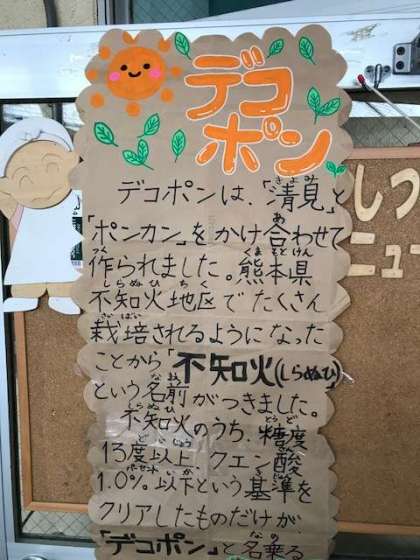 デコ
ポン
デコポンは、「清見」と
「ポンカン」をかけ合わせて
作られました。熊本県
不知火地区でたくさん
栽培されるようになった
ことから「不知火(しらぬひ)」
という名前がつきました。
不知火のうち、糖度
13度以上、クエン酸
1.0%以下という基準を
クリアしたものだけが、
「デコポン」と名乗る
しつ
ニュー